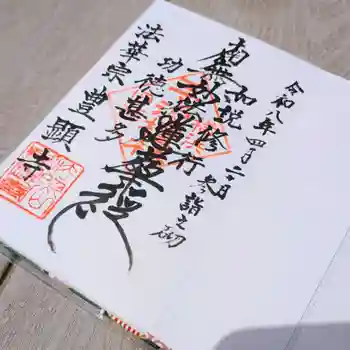 令和八年四月二日
参詣之砌
如説修行
南無妙法蓮華経
功徳甚多
法華宗
豊顕寺